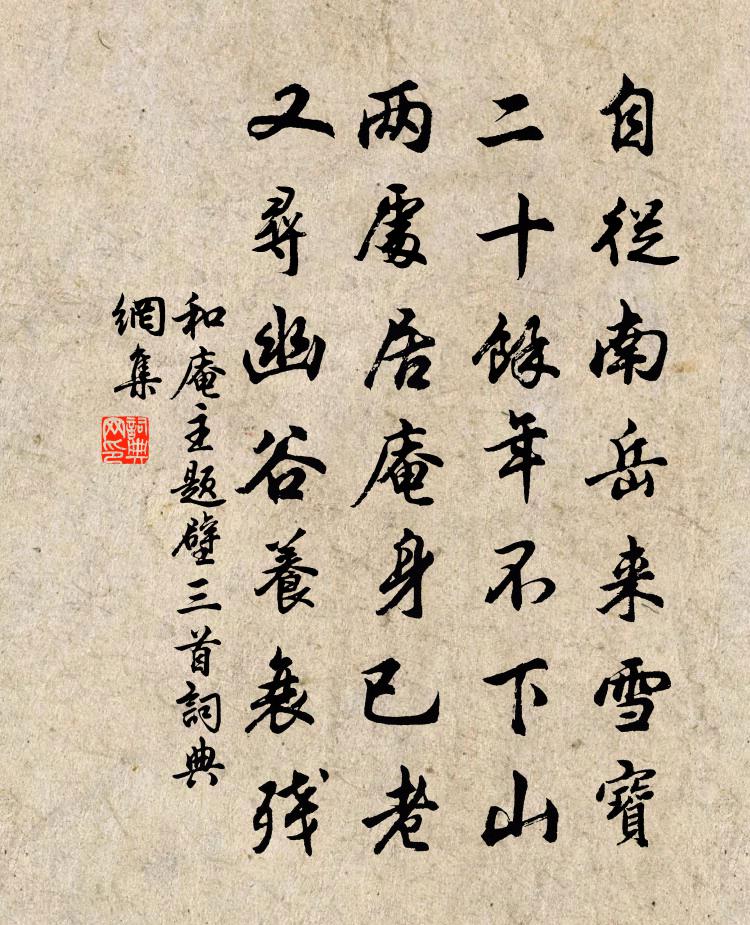 自從南岳来雪寶
二十餘年不下山
两處居庵身已老
又尋幽谷養衰残
和庵主题壁三首詞典
網集
詞典
网印